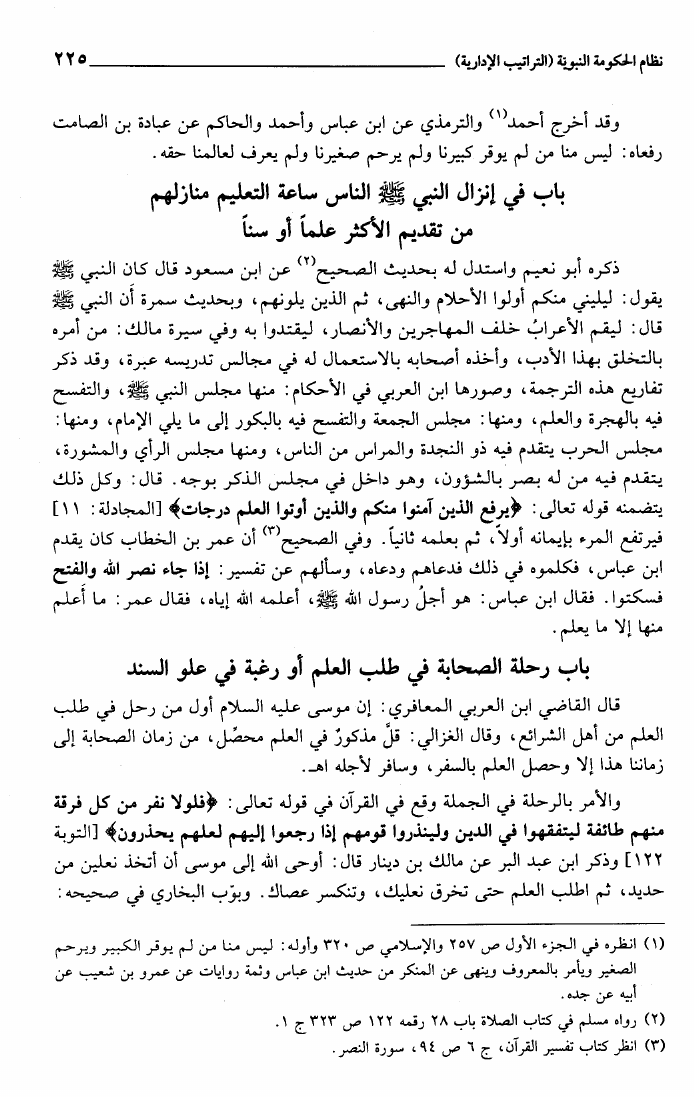 نظام الحكومة النبوية (التراتيب الإدارية) ٢٢٥
وقد أخرج أحمد(١) والترمذي عن ابن عباس وأحمد والحاكم عن عبادة بن الصامت
رفعاه: ليس منا من لم يوقر كبيرنا ولم يرحم صغيرنا ولم يعرف لعالمنا حقه.
باب في إنزال النبي ﷺ الناس ساعة التعليم منازلهم
من تقديم الأكثر علماً أو سناً
ذكره أبو نعيم واستدل له بحديث الصحيح(٢) عن ابن مسعود قال كان النبي ﷺ
يقول: ليليني منكم أولوا الأحلام والنهى، ثم الذين يلونهم، وبحديث سمرة أن النبي ﷺ
قال: ليقم الأعرابُ خلف المهاجرين والأنصار، ليقتدوا به وفي سيرة مالك: من أمره
بالتخلق بهذا الأدب، وأخذه أصحابه بالاستعمال له في مجالس تدريسه عبرة، وقد ذكر
تفاريع هذه الترجمة، وصورها ابن العربي في الأحكام: منها مجلس النبي ﷺ، والتفسح
فيه بالهجرة والعلم، ومنها: مجلس الجمعة والتفسح فيه بالبكور إلى ما يلي الإمام، ومنها:
مجلس الحرب يتقدم فيه ذو النجدة والمراس من الناس، ومنها مجلس الرأي والمشورة،
يتقدم فيه من له بصر بالشؤون، وهو داخل في مجلس الذكر بوجه. قال: وكل ذلك
يتضمنه قوله تعالى: ﴿يرفع الذين آمنوا منكم والذين أوتوا العلم درجات﴾ [المجادلة: ١١]
فيرتفع المرء بإيمانه أولاً، ثم بعلمه ثانياً. وفي الصحيح(٣) أن عمر بن الخطاب كان يقدم
ابن عباس، فكلموه في ذلك فدعاهم ودعاه، وسألهم عن تفسير: إذا جاء نصر الله والفتح
فسكتوا. فقال ابن عباس: هو أجلُ رسول الله ﷺ، أعلمه الله إياه، فقال عمر: ما أعلم
منها إلا ما يعلم.
باب رحلة الصحابة في طلب العلم أو رغبة في علو السند
قال القاضي ابن العربي المعافري: إن موسى عليه السلام أول من رحل في طلب
العلم من أهل الشرائع، وقال الغزالي: قلَّ مذكورٌ في العلم محصِّل، من زمان الصحابة إلى
زماننا هذا إلا وحصل العلم بالسفر، وسافر لأجله اهـ.
والأمر بالرحلة في الجملة وقع في القرآن في قوله تعالى: ﴿فلولا نفر من كل فرقة
منهم طائفة ليتفقهوا في الدين ولينذروا قومهم إذا رجعوا إليهم لعلهم يحذرون﴾ [التوبة
١٢٢] وذكر ابن عبد البر عن مالك بن دينار قال: أوحى الله إلى موسى أن أتخذ نعلين من
حديد، ثم اطلب العلم حتى تخرق نعليك، وتنكسر عصاك. وبوّب البخاري في صحيحه:
(١) انظره في الجزء الأول ص ٢٥٧ والإسلامي ص ٣٢٠ وأوله: ليس منا من لم يوقر الكبير ويرحم
الصغير ويأمر بالمعروف وينهى عن المنكر من حديث ابن عباس وثمة روايات عن عمرو بن شعيب عن
أبيه عن جده.
(٢) رواه مسلم في كتاب الصلاة باب ٢٨ رقمه ١٢٢ ص ٣٢٣ ج ١.
(٣) انظر كتاب تفسير القرآن، ج ٦ ص ٩٤، سورة النصر.